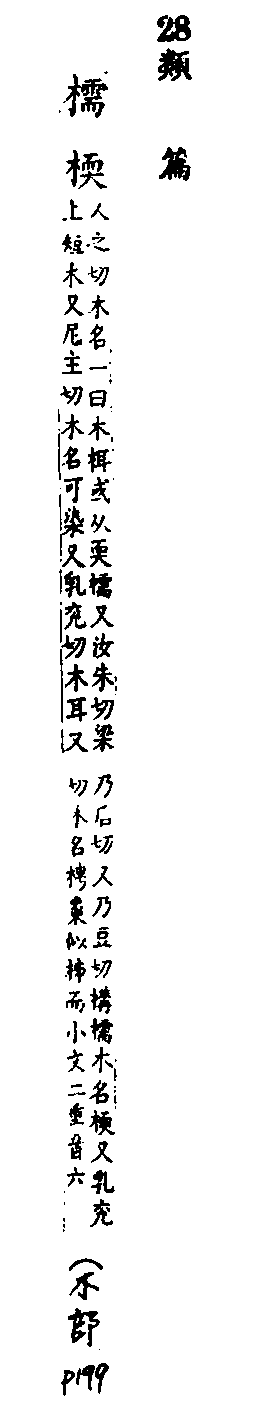 28 類篇
檽㮕
人之切木名一曰木栮或从耎檽又汝朱切梁
上短木又尼主切木名可染又乳兖切木耳又
乃后切又乃豆切構檽木名㮕又乳兖
切木名梬棗似柿而小文二重音六
(木部
P199